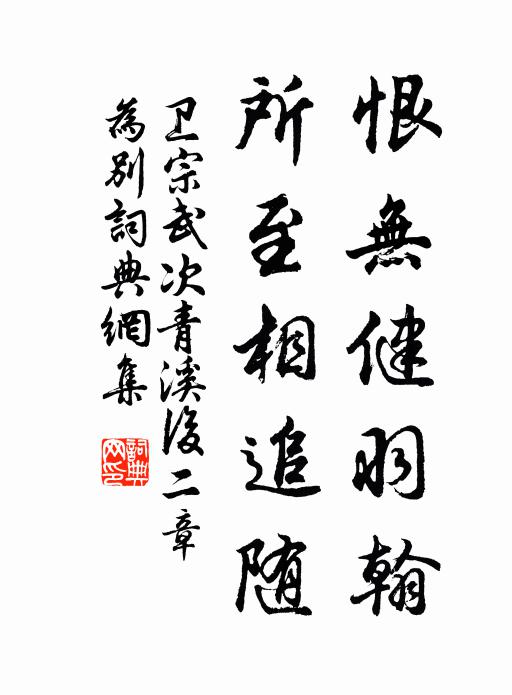 恨無健羽翰
所至相追随
卫宗武次青溪後二章
為别詞典網集
詞典网印